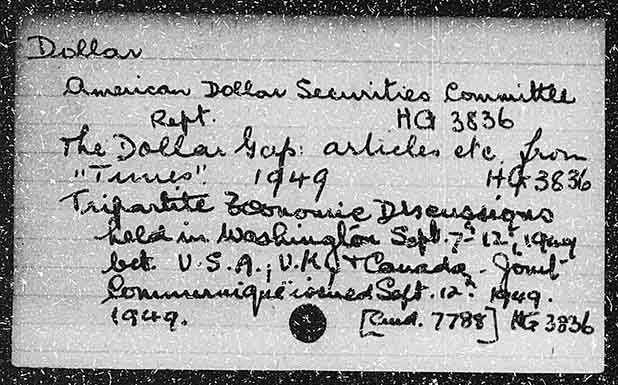 Dollar
American Dollar Securities Committee
Rept. HG 3836
The Dollar Gap: articles etc. from
"Times" 1949 HG 3836
Tripartite Economic Discussions
held in Washington Sept. 7th-12th, 1949
bet. U.S.A., U.K., & Canada - Joint
Communiqué issued Sept. 12th 1949.
1949. [Cmd. 7788] HG 3836